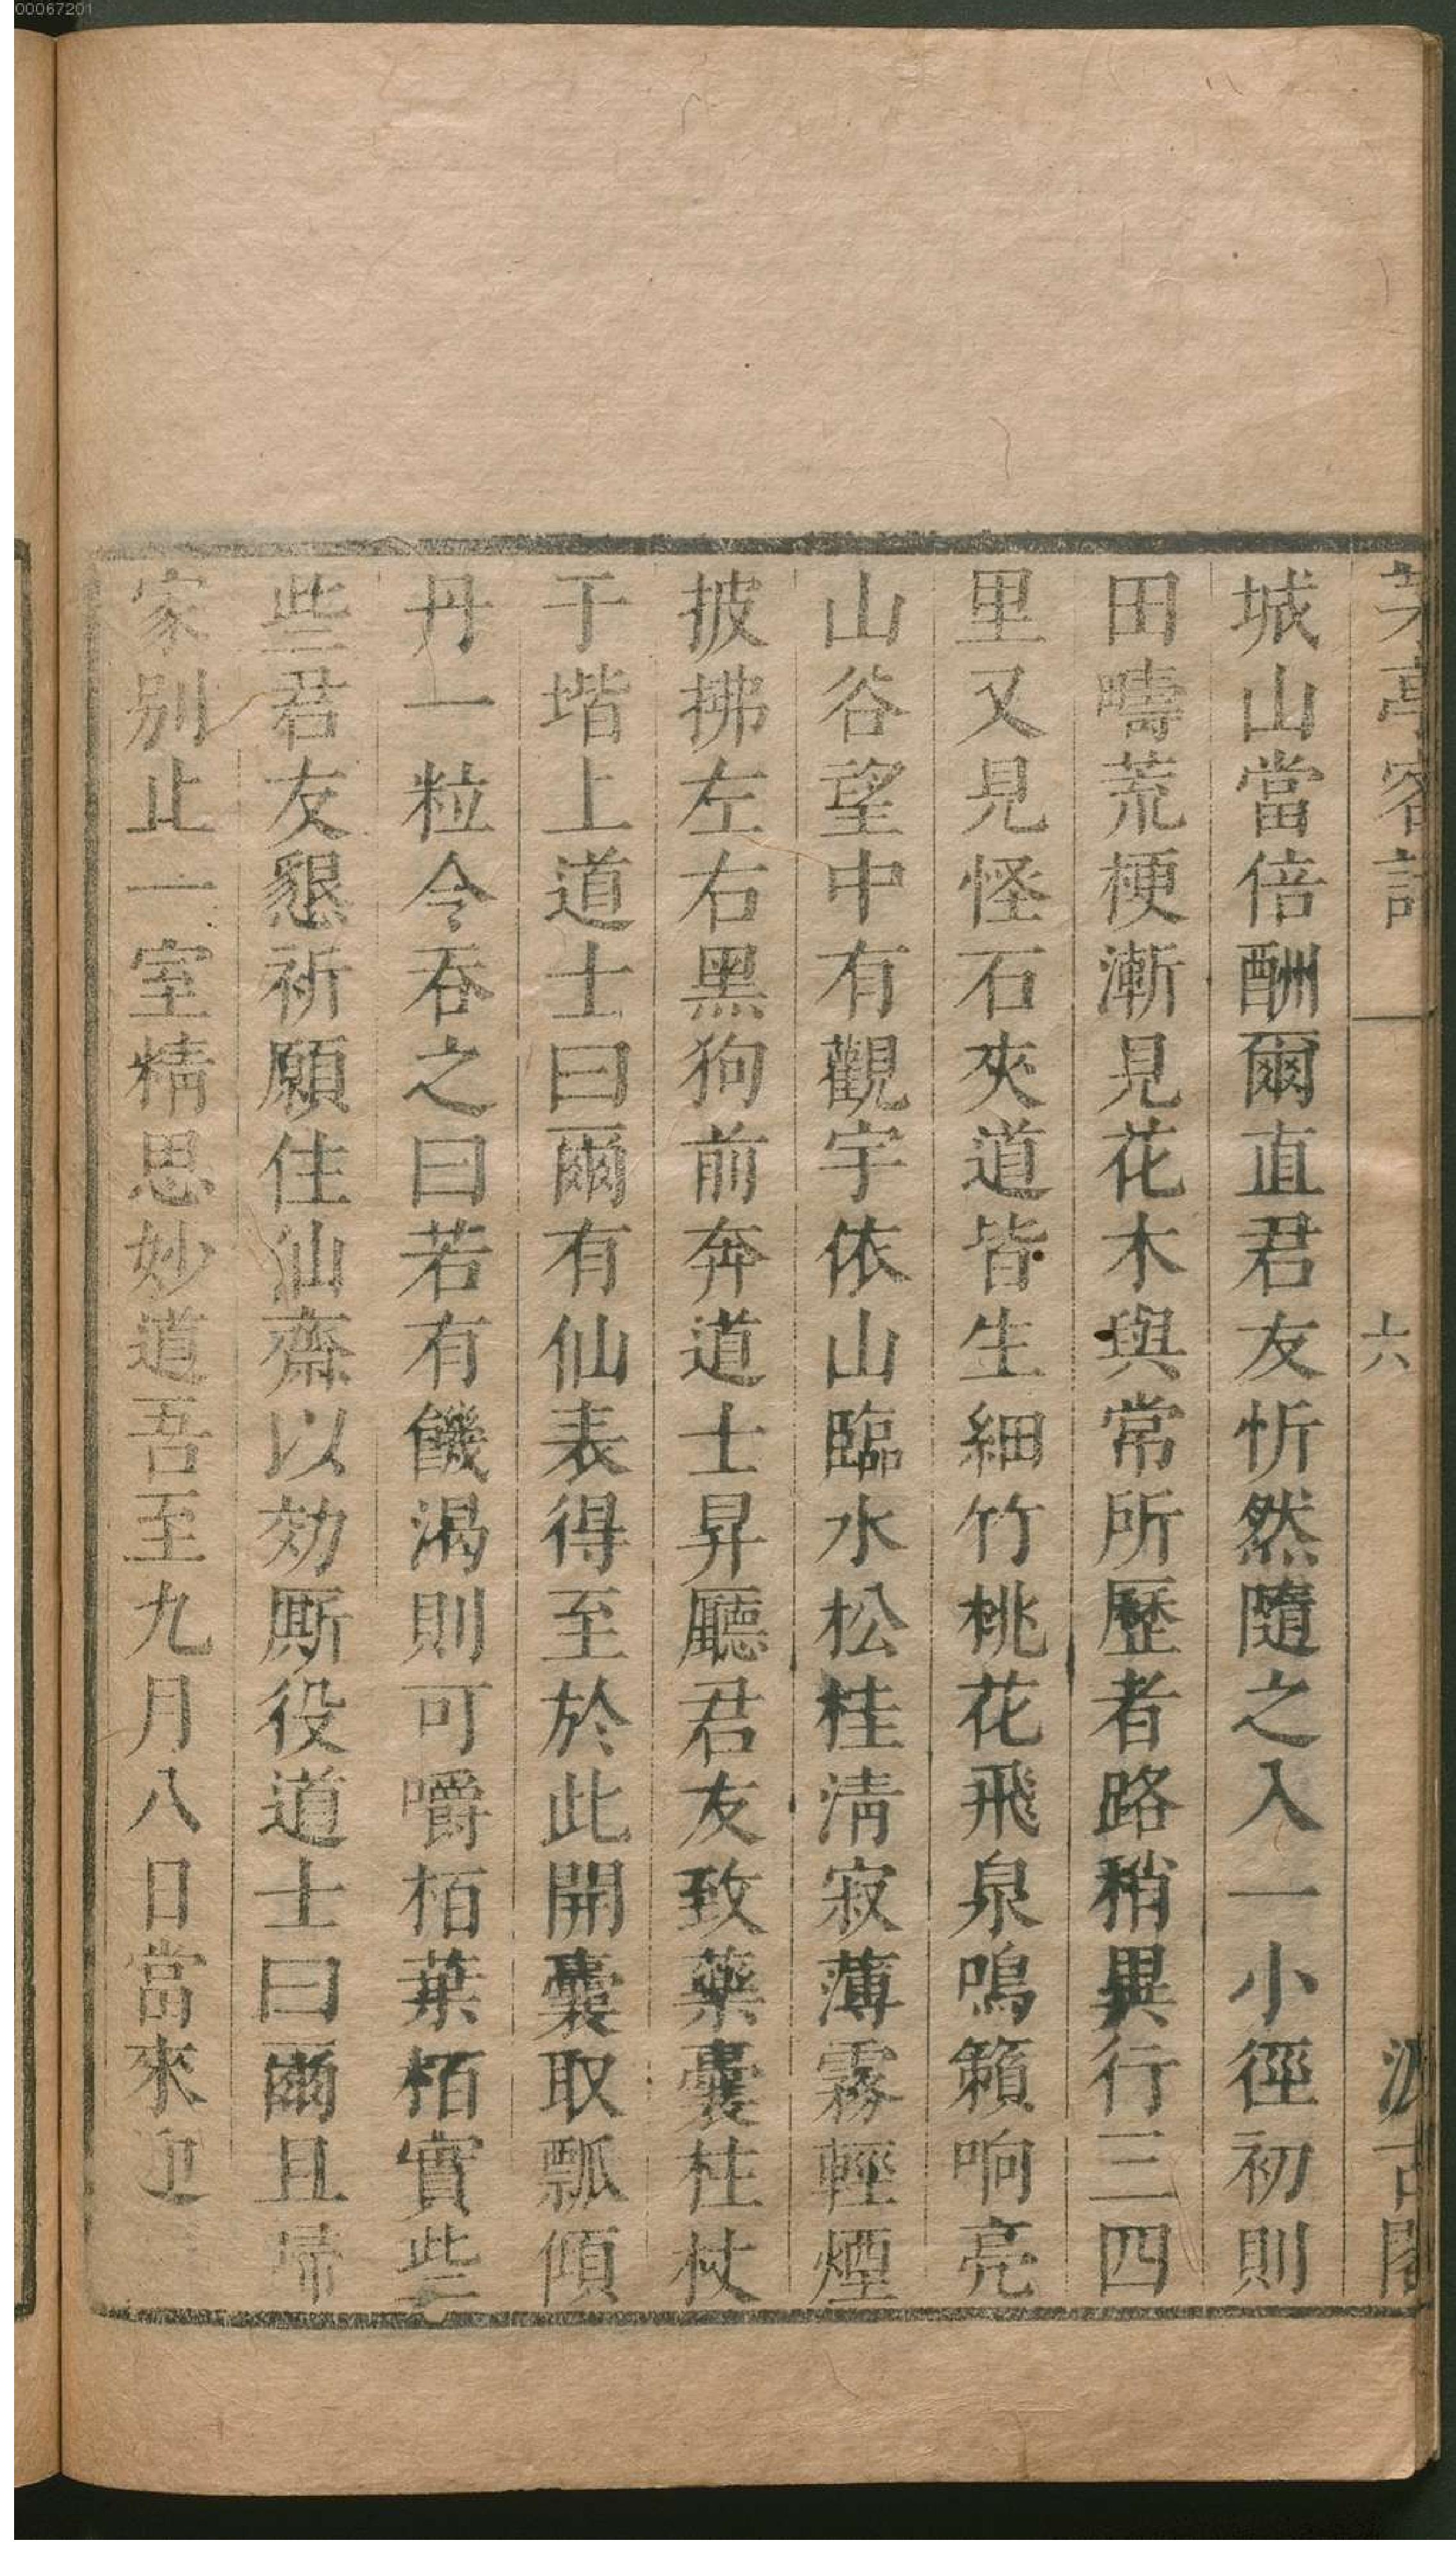 00067201
茅亭客話
六
汲古閣
城山當倍酬爾直君友忻然隨之入一小徑初則
田疇荒梗漸見花木與常所歷者路稍異行三四
里又見怪石夾道皆生細竹桃花飛泉鳴籟响亮
山谷望中有觀宇依山臨水松桂清寂薄霧輕煙
披拂左右黑狗前奔道士昇廳君友致藥囊柱杖
于堦上道士曰爾有仙表得至於此開囊取瓢傾
丹一粒令吞之曰若有饑渴則可嚼栢葉栢實些
些君友懇祈願住仙齋以効厮役道士曰爾且歸
家別止一室精思妙道吾至九月八日當來迎